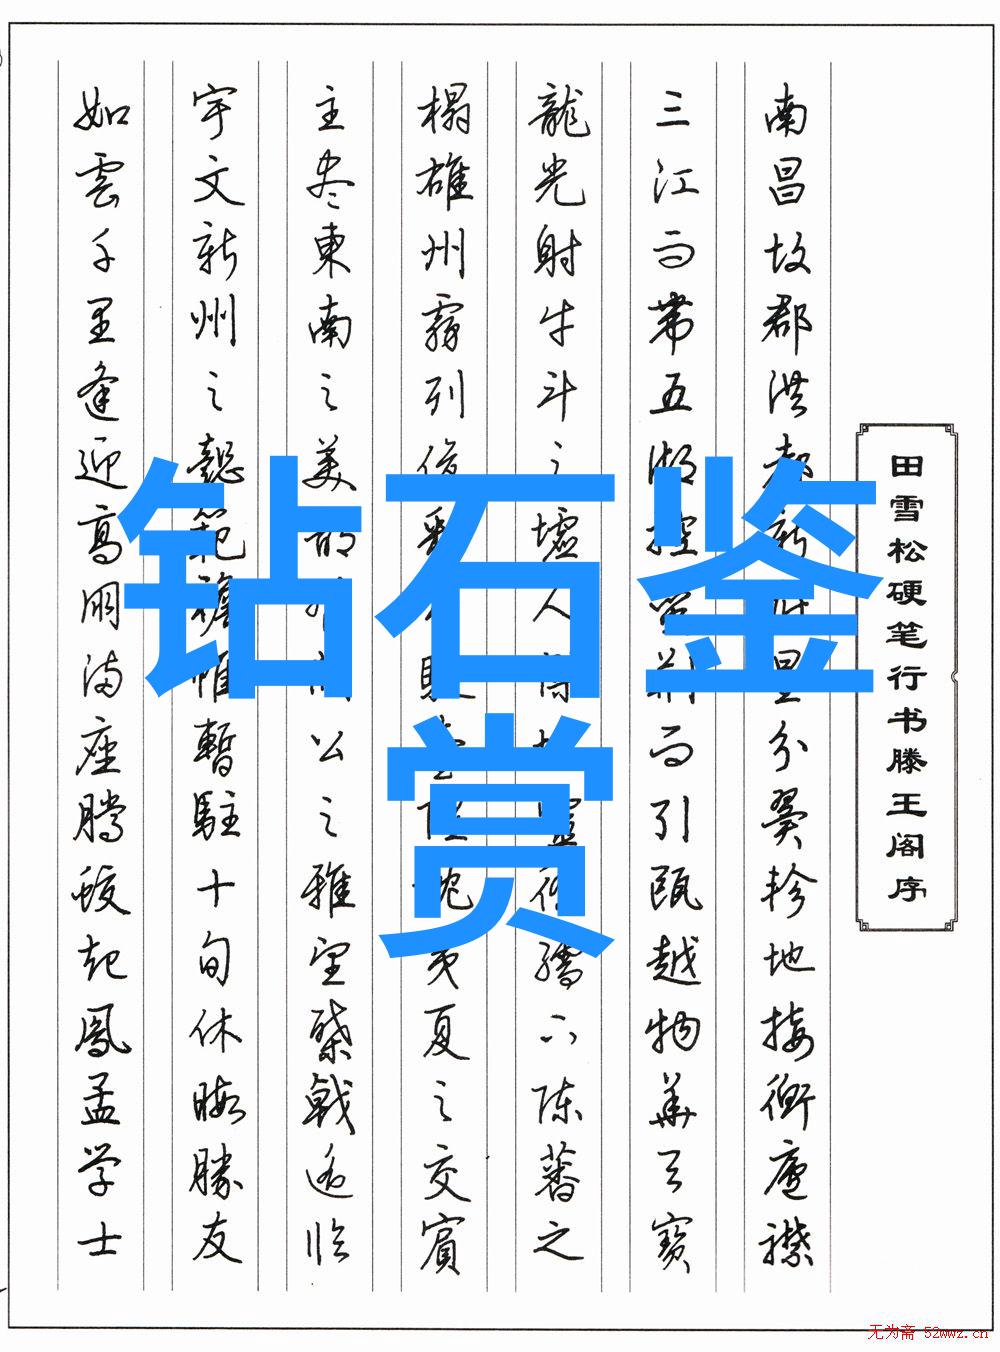 田雪松硬笔行书滕王阁序
南昌故郡洪都新府星分翼轸地接衡廬襟
三江而带五湖控荆而引甌越物華天寶
龍光射牛斗之墟人靈徐孺下陈蕃之
榻雄州霧列枕夷夏之交賓
主尽東南之美公之雅望棨戟遥临
宇文新州之懿範襜帷暫駐十旬休暇勝友
如雲千里逢迎高朋满座腾蛟起鳳孟学士
钻石鉴
赏
无为斋 52wwz.cn